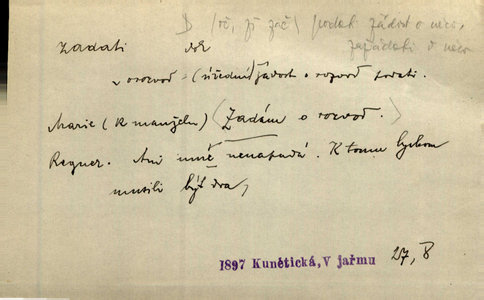 D (oč, zř zač) podati žádost o něco,
zažádati o něco
zadati dok
~ o rozvod = (úřední) žádost o rozvod podati.
Marie (k manželu) (Zadám o rozvod.)
Regner. Ani mně nenapadá. K tomu bychom
musili být dva,
1897 Kunětická, V jařmu 27, B